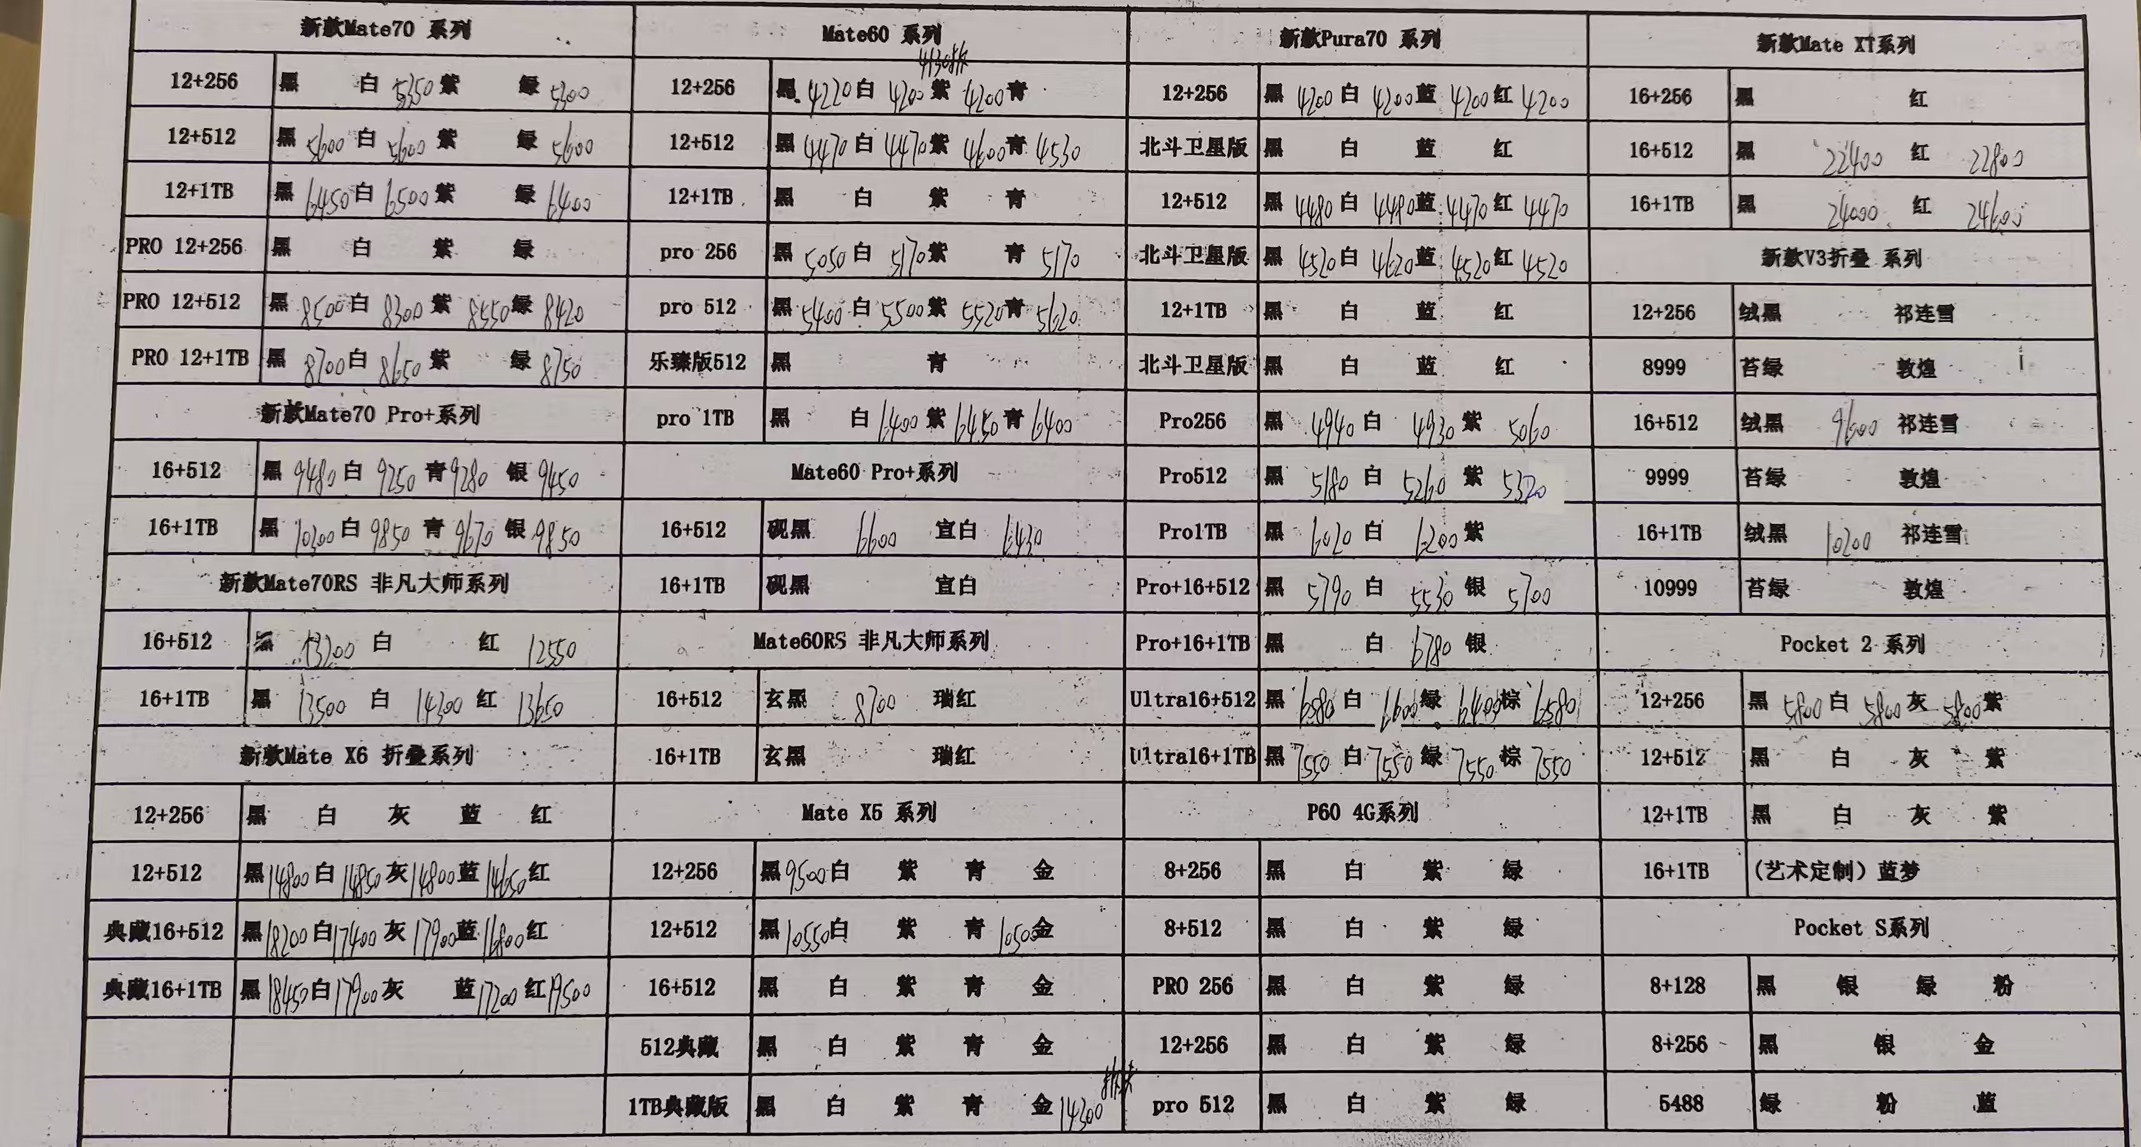 新款Mate70 系列
12+256 黑 白 5350 紫 绿 5300
12+512 黑 5600 白 5600 紫 绿 5600
12+1TB 黑 6450 白 6500 紫 绿 6400
PRO 12+256 黑 白 紫 绿
PRO 12+512 黑 8500 白 8300 紫 8550 绿 8420
PRO 12+1TB 黑 8700 白 8650 紫 绿 8750
新款Mate70 Pro+系列
16+512 黑 9480 白 9250 青 9280 银 9450
16+1TB 黑 10200 白 9850 青 9670 银 9850
新款Mate70RS 非凡大师系列
16+512 黑 13200 白 红 12550
16+1TB 黑 13500 白 14300 红 13650
新款Mate X6 折叠系列
12+256 黑 白 灰 蓝 红
12+512 黑 14800 白 14850 灰 14800 蓝 14650 红
典藏16+512 黑 18200 白 17400 灰 17900 蓝 16800 红
典藏16+1TB 黑 18450 白 17900 灰 蓝 17200 红 19500
Mate60 系列
4130
12+256 黑 4220 白 4200 紫 4200 青
12+512 黑 4470 白 4470 紫 4600 青 4530
12+1TB 黑 白 紫 青
pro 256 黑 5050 白 5170 紫 青 5170
pro 512 黑 5400 白 5500 紫 5520 青 5620
乐臻版512 黑 青
pro 1TB 黑 白 6400 紫 6450 青 6400
Mate60 Pro+系列
16+512 砚黑 6600 宣白 6430
16+1TB 砚黑 宣白
Mate60RS 非凡大师系列
16+512 玄黑 8700 瑞红
16+1TB 玄黑 瑞红
Mate X5 系列
12+256 黑 9500 白 紫 青 金
12+512 黑 10550 白 紫 青 10500 金
16+512 黑 白 紫 青 金
512典藏 黑 白 紫 青 金
1TB典藏版 黑 白 紫 青 金 14300
新款Pura70 系列
12+256 黑 4200 白 4200 蓝 4200 红 4200
北斗卫星版 黑 白 蓝 红
12+512 黑 4480 白 4490 蓝 4470 红 4470
北斗卫星版 黑 4520 白 4620 蓝 4520 红 4520
12+1TB 黑 白 蓝 红
北斗卫星版 黑 白 蓝 红
Pro256 黑 4940 白 4930 紫 5060
Pro512 黑 5180 白 5260 紫 5320
Pro1TB 黑 6020 白 6200 紫
Pro+16+512 黑 5790 白 5530 银 5700
Pro+16+1TB 黑 白 6780 银
Ultra16+512 黑 6580 白 6600 绿 6400 棕 6580
Ultra16+1TB 黑 7550 白 7550 绿 7550 棕 7550
P60 4G系列
8+256 黑 白 紫 绿
8+512 黑 白 紫 绿
PRO 256 黑 白 紫 绿
12+256 黑 白 紫 绿
pro 512 黑 白 紫 绿
新款Mate XT系列
16+256 黑 红
16+512 黑 22400 红 22800
16+1TB 黑 24000 红 24600
新款V3折叠 系列
12+256 绒黑 祁连雪
8999 苔绿 敦煌
16+512 绒黑 9600 祁连雪
9999 苔绿 敦煌
16+1TB 绒黑 10200 祁连雪
10999 苔绿 敦煌
Pocket 2 系列
12+256 黑 5800 白 5800 灰 5800 紫
12+512 黑 白 灰 紫
12+1TB 黑 白 灰 紫
16+1TB (艺术定制) 蓝梦
Pocket S系列
8+128 黑 银 绿 粉
8+256 黑 银 金
5488 绿 粉 蓝